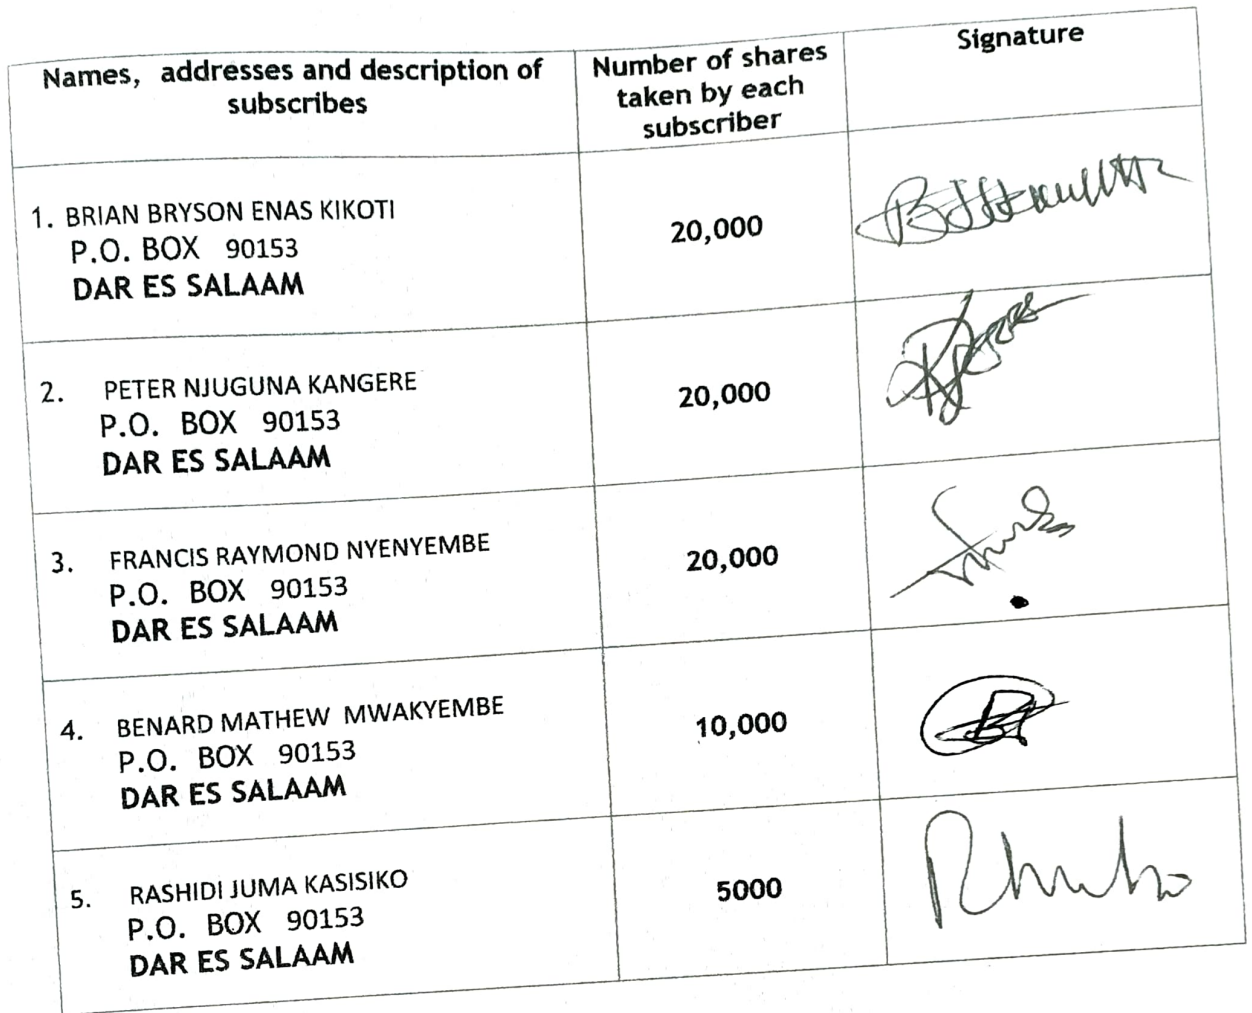 Names, addresses and description of
subscribes
Number of shares
taken by each
subscriber
Signature
1. BRIAN BRYSON ENAS KIKOTI
P.O. BOX 90153
DAR ES SALAAM
20,000
2. PETER NJUGUNA KANGERE
P.O. BOX 90153
DAR ES SALAAM
20,000
3. FRANCIS RAYMOND NYENYEMBE
P.O. BOX 90153
DAR ES SALAAM
20,000
4. BENARD MATHEW MWAKYEMBE
P.O. BOX 90153
DAR ES SALAAM
10,000
5. RASHIDI JUMA KASISIKO
P.O. BOX 90153
DAR ES SALAAM
5000